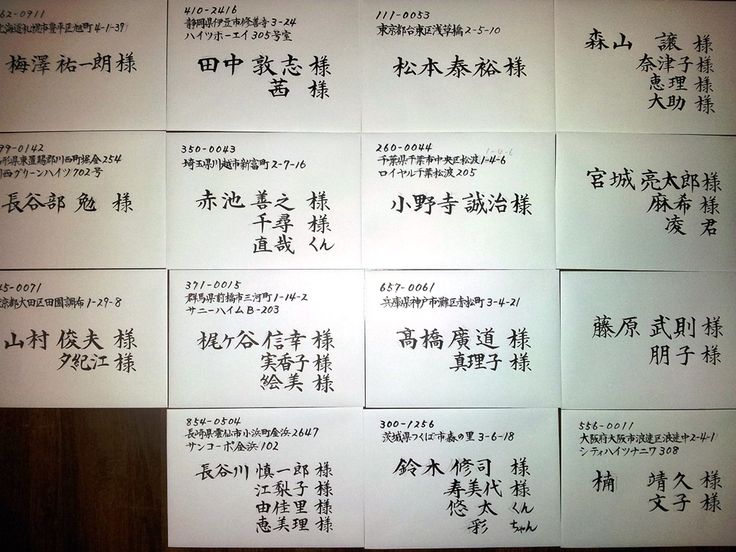 62-0911
北海道札幌市豊平区旭町4-1-39
梅澤祐一朗様
410-2416
静岡県伊豆市修善寺3-24
ハイツホーエイ305号室
田中敦志様
茜 様
111-0053
東京都台東区浅草橋2-5-10
松本泰裕様
森山 譲 様
奈津子様
恵理 様
大助 様
99-0142
形県東置賜郡川西町堀金254
西グリーンハイツ702号
長谷部 勉 様
350-0043
埼玉県川越市新富町2-7-16
赤池善之 様
千尋 様
直哉 くん
260-0044
千葉県千葉市中央区松波1-4-6
ロイヤル千葉松波205
小野寺誠治様
宮城亮太郎様
麻希 様
凌 君
45-0071
京都大田区田園調布1-29-8
山村俊夫 様
夕紀江 様
371-0015
群馬県前橋市三河町1-14-2
サニーハイムB-203
梶ヶ谷信幸 様
実香子 様
絵美 様
657-0061
兵庫県神戸市灘区青松町3-4-21
髙橋廣道 様
真理子 様
藤原武則 様
朋子 様
854-0504
長崎県雲仙市小浜町金浜2647
サンコーポ金浜102
長谷川慎一郎 様
江梨子 様
由佳里 様
恵美理 様
300-1256
茨城県つくば市森の里3-6-18
鈴木修司 様
寿美代 様
悠太 くん
彩 ちゃん
556-0011
大阪府大阪市浪速区浪速中2-4-1
シティハイツナニワ308
楠 靖久 様
文子 様